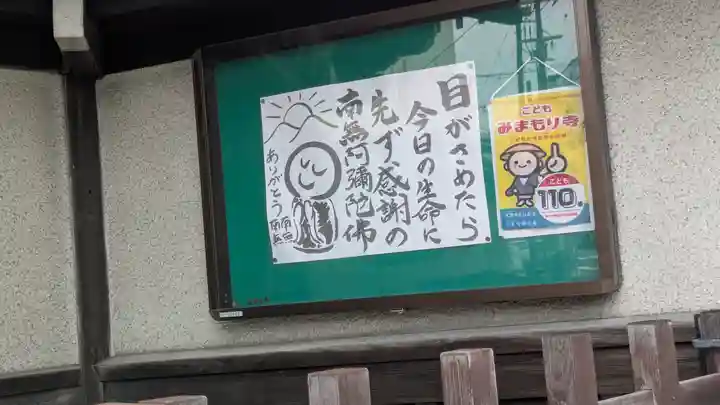 目がさめたら
今日の生命に
先ず感謝の
南無阿彌陀佛
ありがとう
こども
みまもり寺
こども
110番